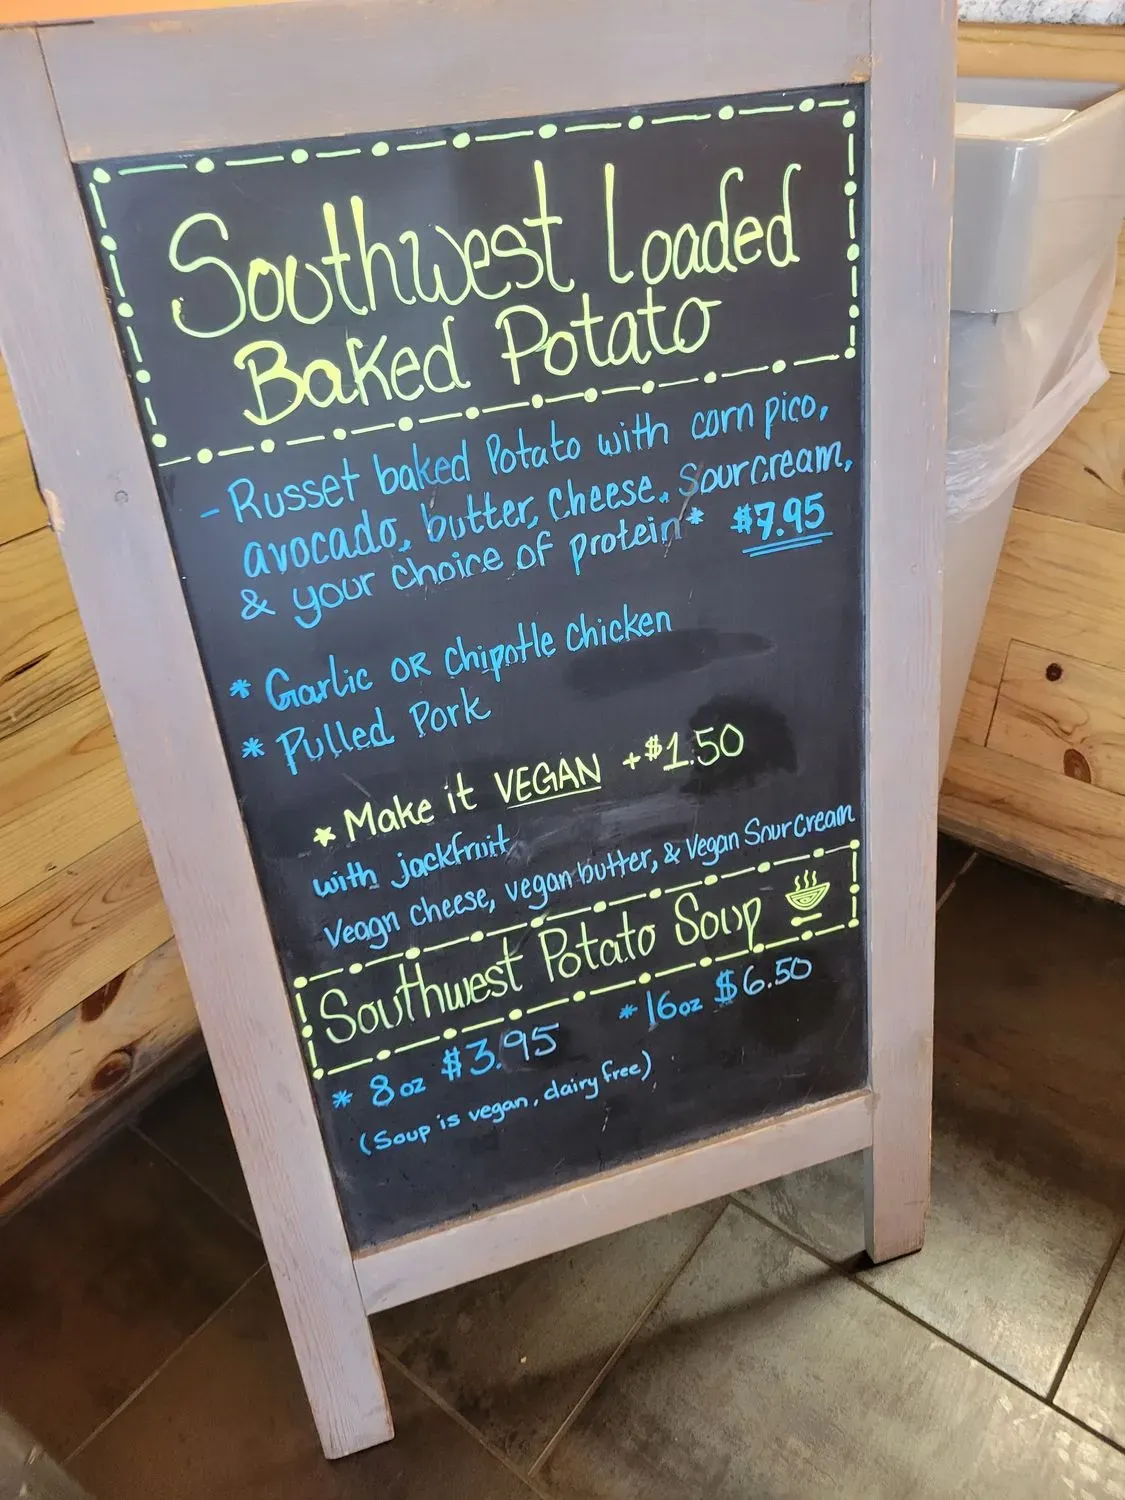 Southwest Loaded
Baked Potato
- Russet baked Potato with corn pico,
avocado, butter, cheese, Sour cream,
& your choice of protein* $7.95
* Garlic OR chipotle chicken
* Pulled Pork
* Make it VEGAN +$1.50
with jackfruit
Veagn cheese, vegan butter, & Vegan Sour Cream
Southwest Potato Soup
* 8oz $3.95 * 16oz $6.50
(Soup is vegan, dairy free)